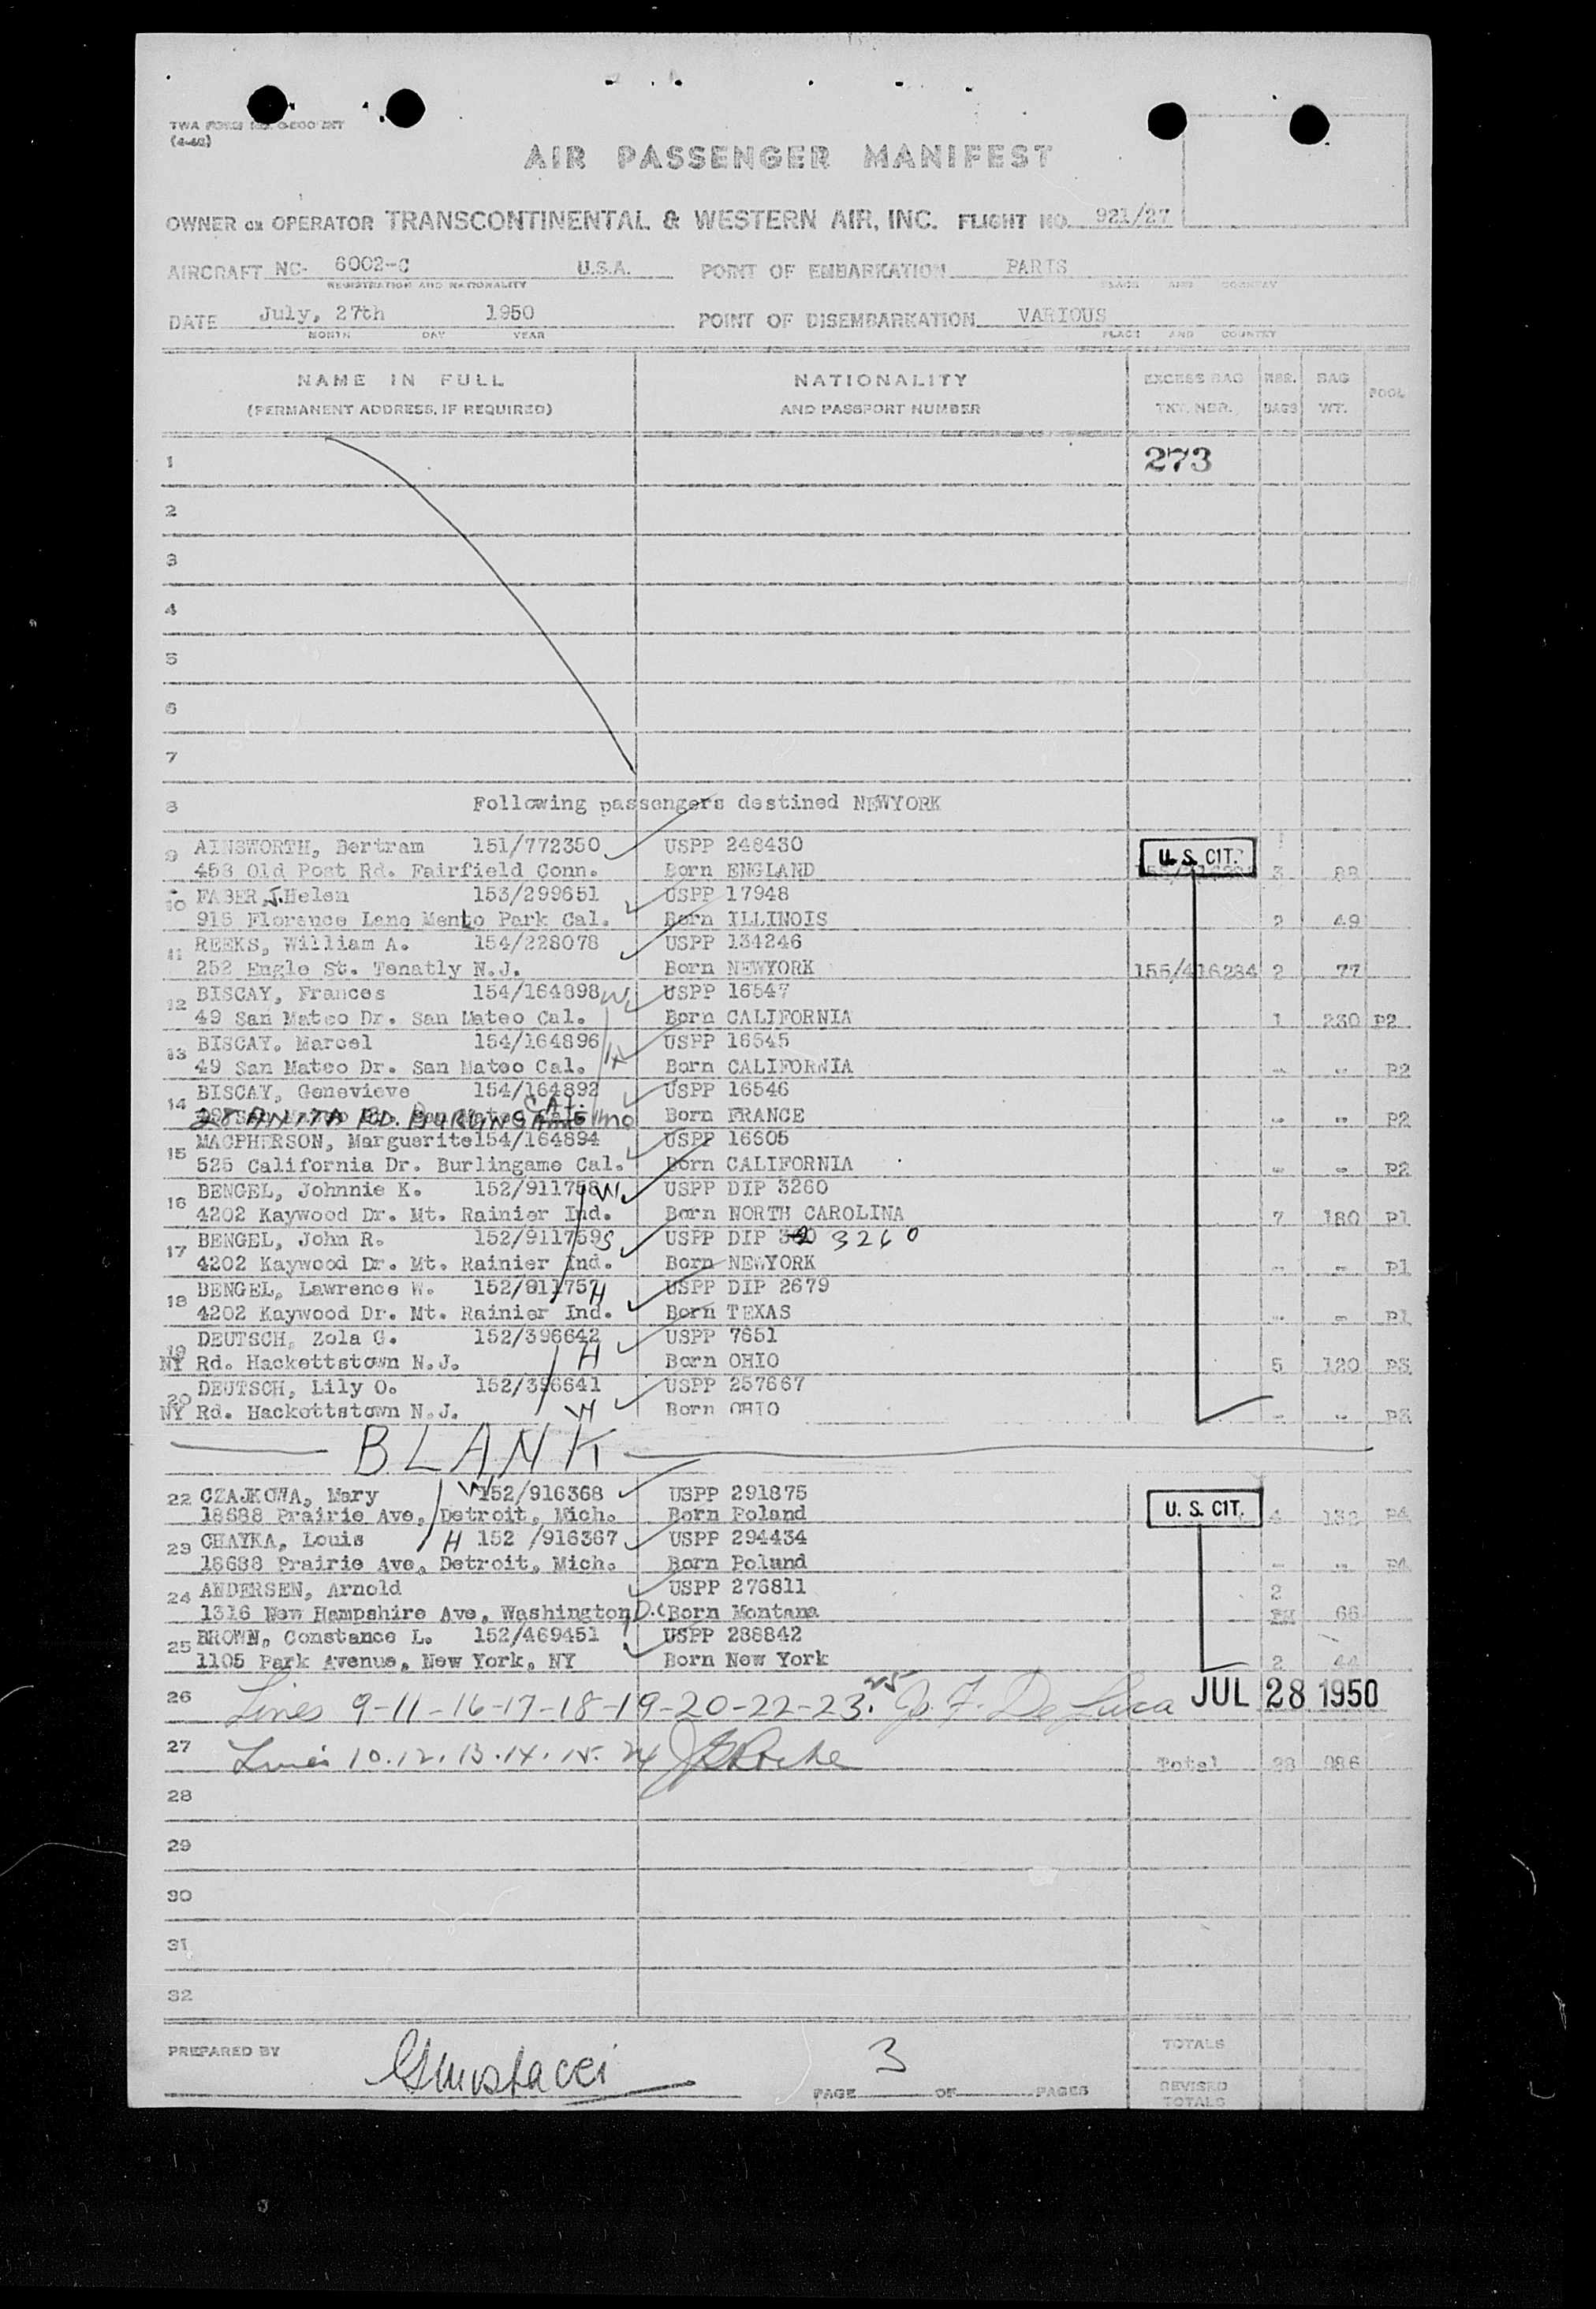 TWA FORM NO. O-200 INT
(4-48)
AIR PASSENGER MANIFEST
OWNER OR OPERATOR TRANSCONTINENTAL & WESTERN AIR, INC. FLIGHT NO. 921/27
AIRCRAFT NC- 6002-C U.S.A. POINT OF EMBARKATION PARIS
REGISTRATION AND NATIONALITY PLACE AND COUNTRY
DATE July, 27th 1950 POINT OF DISEMBARKATION VARIOUS
MONTH DAY YEAR PLACE AND COUNTRY
NAME IN FULL NATIONALITY EXCESS BAG NBR. BAG POOL
(PERMANENT ADDRESS, IF REQUIRED) AND PASSPORT NUMBER TKT. NBR. BAGS WT.
1 273
2
3
4
5
6
7
8 Following passengers destined NEWYORK
9 AINSWORTH, Bertram 151/772350 USPP 248430 U. S. CIT.
458 Old Post Rd. Fairfield Conn. Born ENGLAND 3 88
10 FABER, J. Helen 153/299651 USPP 17948
915 Florence Lane Menlo Park Cal. Born ILLINOIS 2 49
11 REEKS, William A. 154/228078 USPP 134246
252 Engle St. Tenatly N.J. Born NEWYORK 155/416284 2 77
12 BISCAY, Frances 154/164898 W. USPP 16547
49 San Mateo Dr. San Mateo Cal. Born CALIFORNIA 1 230 P2
13 BISCAY. Marcel 154/164896 H USPP 16545
49 San Mateo Dr. San Mateo Cal. Born CALIFORNIA - - P2
14 BISCAY, Genevieve 154/164892 USPP 16546
28 ANITA RD. BURLINGAME CAL. Born FRANCE - - P2
15 MACPHERSON, Marguerite 154/164894 USPP 16605
525 California Dr. Burlingame Cal. Born CALIFORNIA - - P2
16 BENGEL, Johnnie K. 152/911758 W. USPP DIP 3260
4202 Kaywood Dr. Mt. Rainier Ind. Born NORTH CAROLINA 7 180 P1
17 BENGEL, John R. 152/911759 S USPP DIP 3260
4202 Kaywood Dr. Mt. Rainier Ind. Born NEWYORK - - P1
18 BENGEL, Lawrence W. 152/911757 H USPP DIP 2679
4202 Kaywood Dr. Mt. Rainier Ind. Born TEXAS - - P1
19 DEUTSCH, Zola G. 152/396642 USPP 7651
NY Rd. Hackettstown N.J. H Born OHIO 5 120 P3
20 DEUTSCH, Lily O. 152/396641 USPP 257667
NY Rd. Hackettstown N.J. W Born OHIO - - P3
BLANK
22 CZAJKOWA, Mary W 152/916368 USPP 291875 U. S. CIT.
18688 Prairie Ave, Detroit, Mich. Born Poland 4 132 P4
23 CHAYKA, Louis H 152 /916367 USPP 294434
18688 Prairie Ave, Detroit, Mich. Born Poland - - P4
24 ANDERSEN, Arnold USPP 276811 2
1316 New Hampshire Ave, Washington D.C Born Montana 66
25 BROWN, Constance L. 152/469451 USPP 288842
1105 Park Avenue, New York, NY Born New York 2 44
26 Lines 9-11-16-17-18-19-20-22-23. 25 Jo. F. De Luca JUL 28 1950
27 Lines 10.12.13.14.15. 24 Total 28 986
28
29
30
31
32
PREPARED BY 3 TOTALS
PAGE OF PAGES REVISED
TOTALS